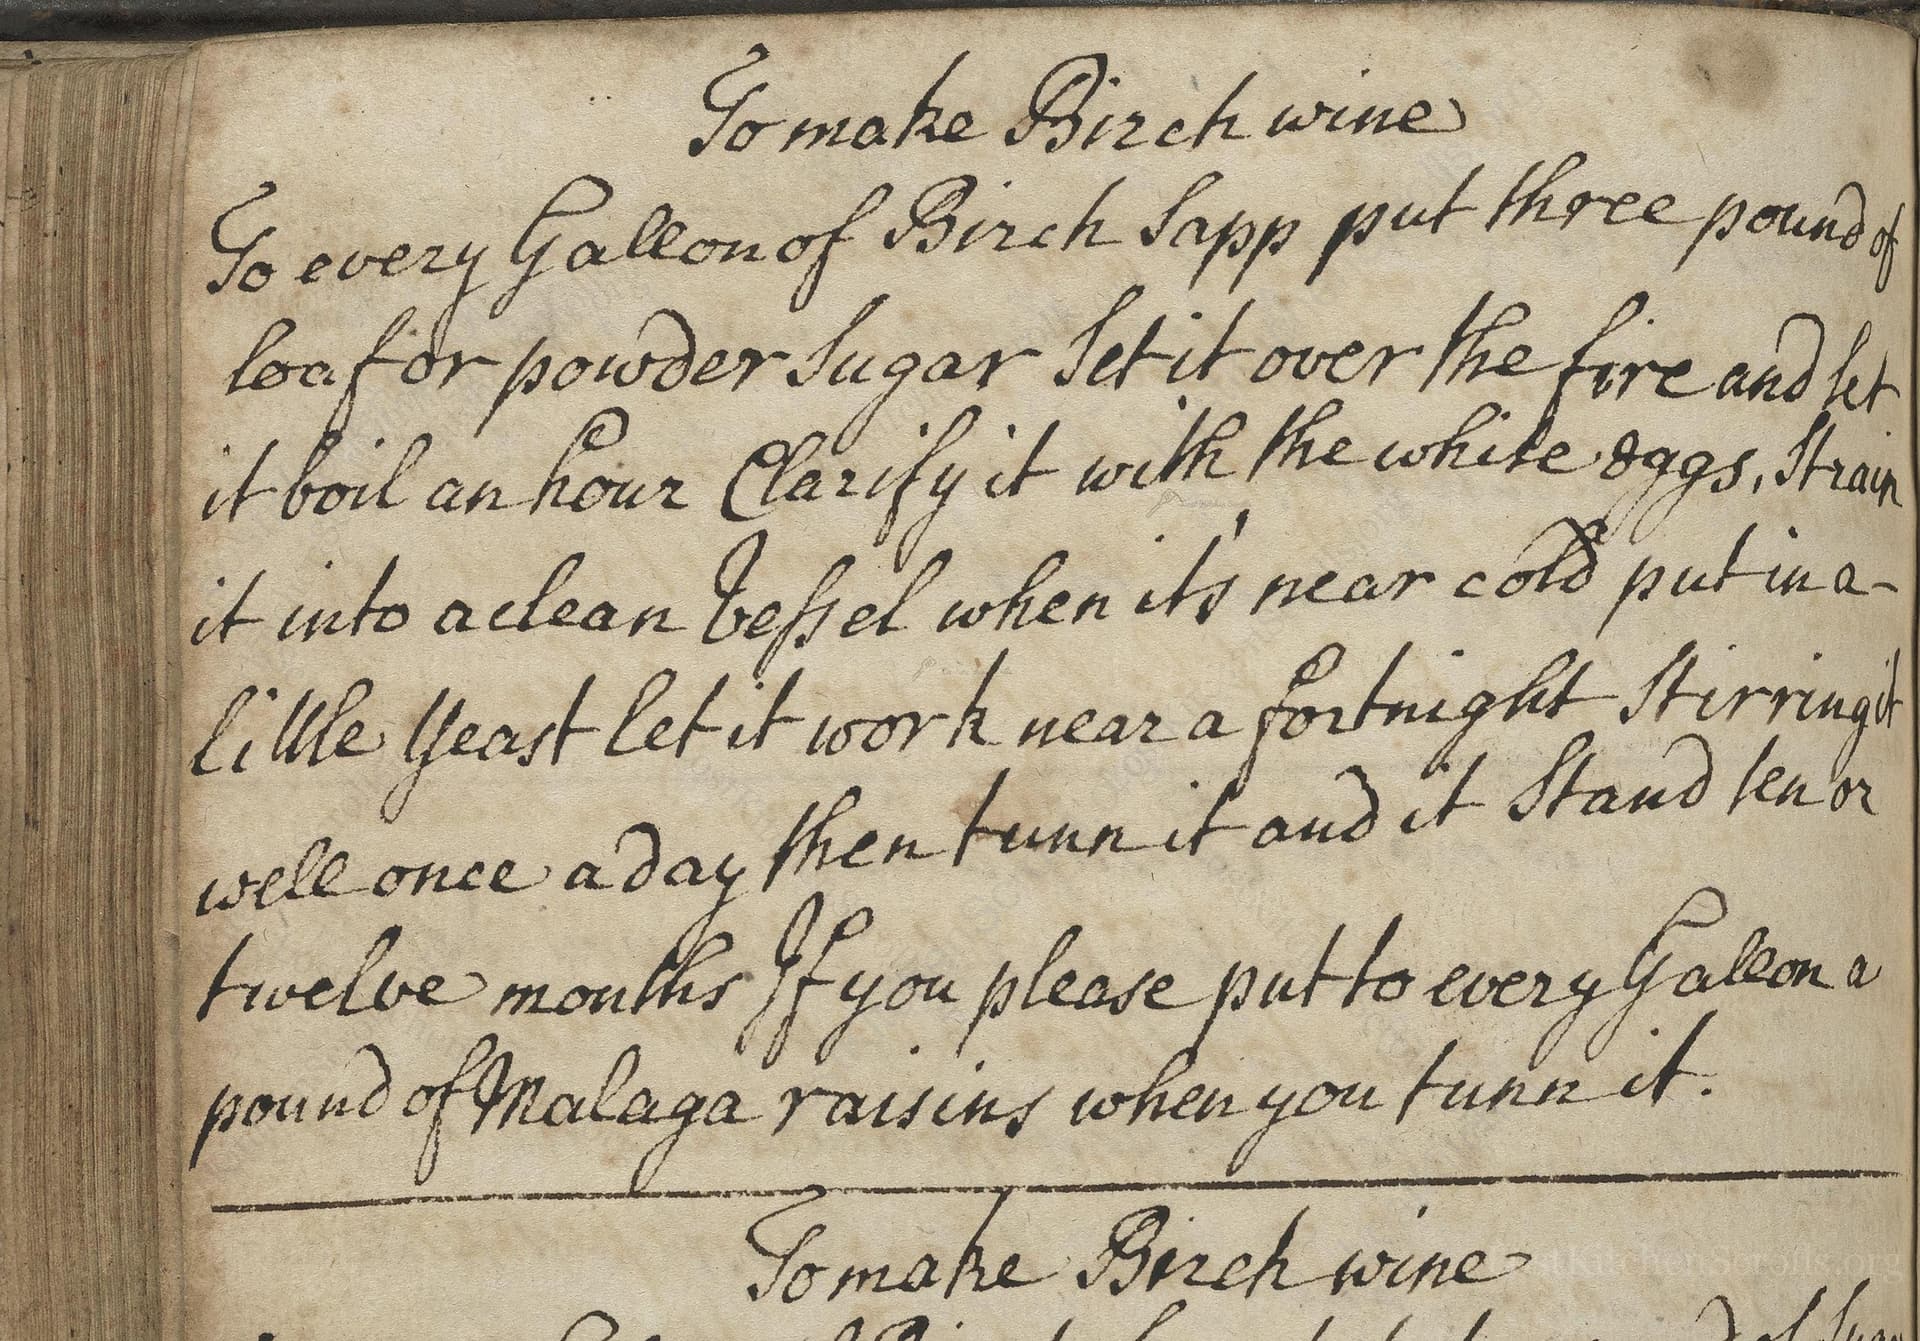 To make Birch wine
To every Gallon of Birch Sapp put three pound of
loaf or powder Sugar Set it over the fire and let
it boil an hour Clarify it with the white eggs, Strain
it into a clean Vessel when it's near cold put in a-
little Yeast let it work near a fortnight Stirring it
well once a day then tunn it and it Stand ten or
twelve months If you please put to every Gallon a
pound of Malaga raisins when you tunn it.
To make Birch wine